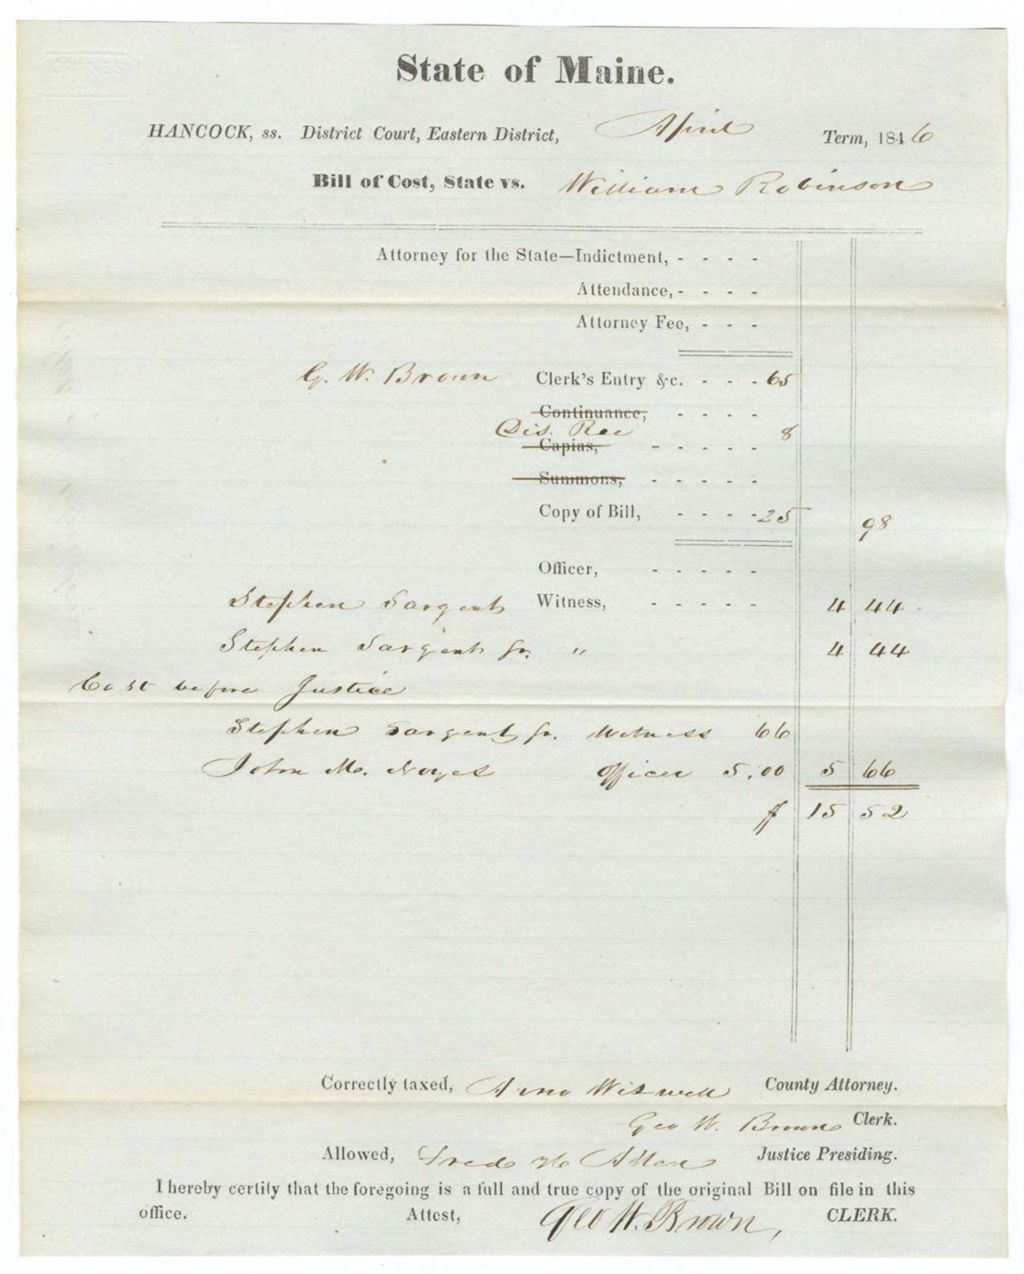 State of Maine.
HANCOCK, ss. District Court, Eastern District, April Term, 1846
Bill of Cost, State vs. William Robinson
Attorney for the State—Indictment, - - - -
Attendance, - - - -
Attorney Fee, - - -
G. W. Brown Clerk's Entry &c. - - - 65
Continuance, - - - -
Dis. Rec 8
Capias, - - - - -
Summons, - - - - -
Copy of Bill, - - - - 25 98
Officer, - - - - -
Stephen Sargent Witness, - - - - - 4 44
Stephen Sargent Jr. " 4 44
Cost before Justice
Stephen Sargent Jr. Witness 66
John M. Noyes Officer 5.00 5 66
$ 15 52
Correctly taxed, Arno Wiswell County Attorney.
Geo W. Brown Clerk.
Allowed, Fred H Allen Justice Presiding.
I hereby certify that the foregoing is a full and true copy of the original Bill on file in this
office. Attest, Geo W. Brown, CLERK.